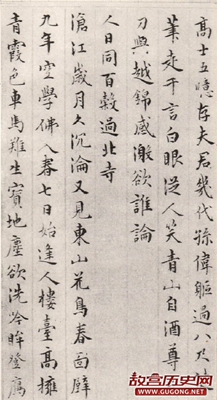 高士五噫存夫君幾代孫偉軀過八尺
筆走千言白眼從人笑青山自酒尊
刀與越錦感激欲誰論
人日同百穀過北寺
滄江歲月久沉淪又見東山花鳥春面壁
九年空學佛入春七日始逢人樓臺高擁
青霞色車馬難生寶地塵欲洗吟眸登雁
故宫历史网
WWW.GUGONG.NET